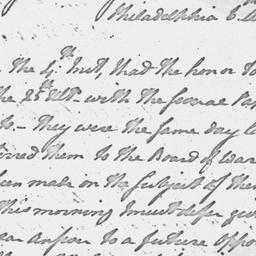 Philadelphia 6
the 4th Inst, I had the honor to
the 25th Ult. with the several Pa
to- They were the same day
ferred them to the Board of War
been made on the subject of the
This morning I must defer giv
ear answer to a future Oppo